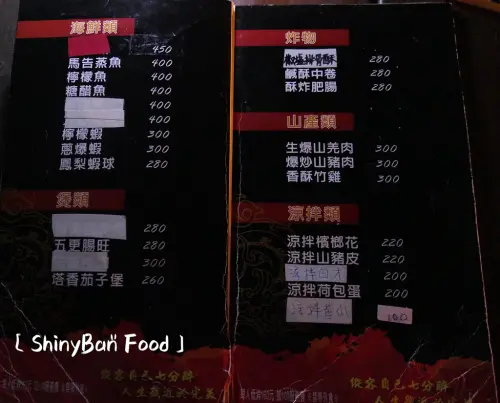 海鮮類
450
馬告蒸魚 400
檸檬魚 400
糖醋魚 400
400
400
檸檬蝦 300
蔥爆蝦 300
鳳梨蝦球 280
煲類
280
五更腸旺 280
300
塔香茄子堡 260
炸物
280
鹹酥中卷 280
酥炸肥腸 280
山產類
生爆山羌肉 300
爆炒山豬肉 300
香酥竹雞 300
涼拌類
涼拌檳榔花 220
涼拌山豬皮 220
200
涼拌荷包蛋 200
[ ShinyBan Food ]
縱容自己七分醉
人生最近於完美
縱容自己七分醉